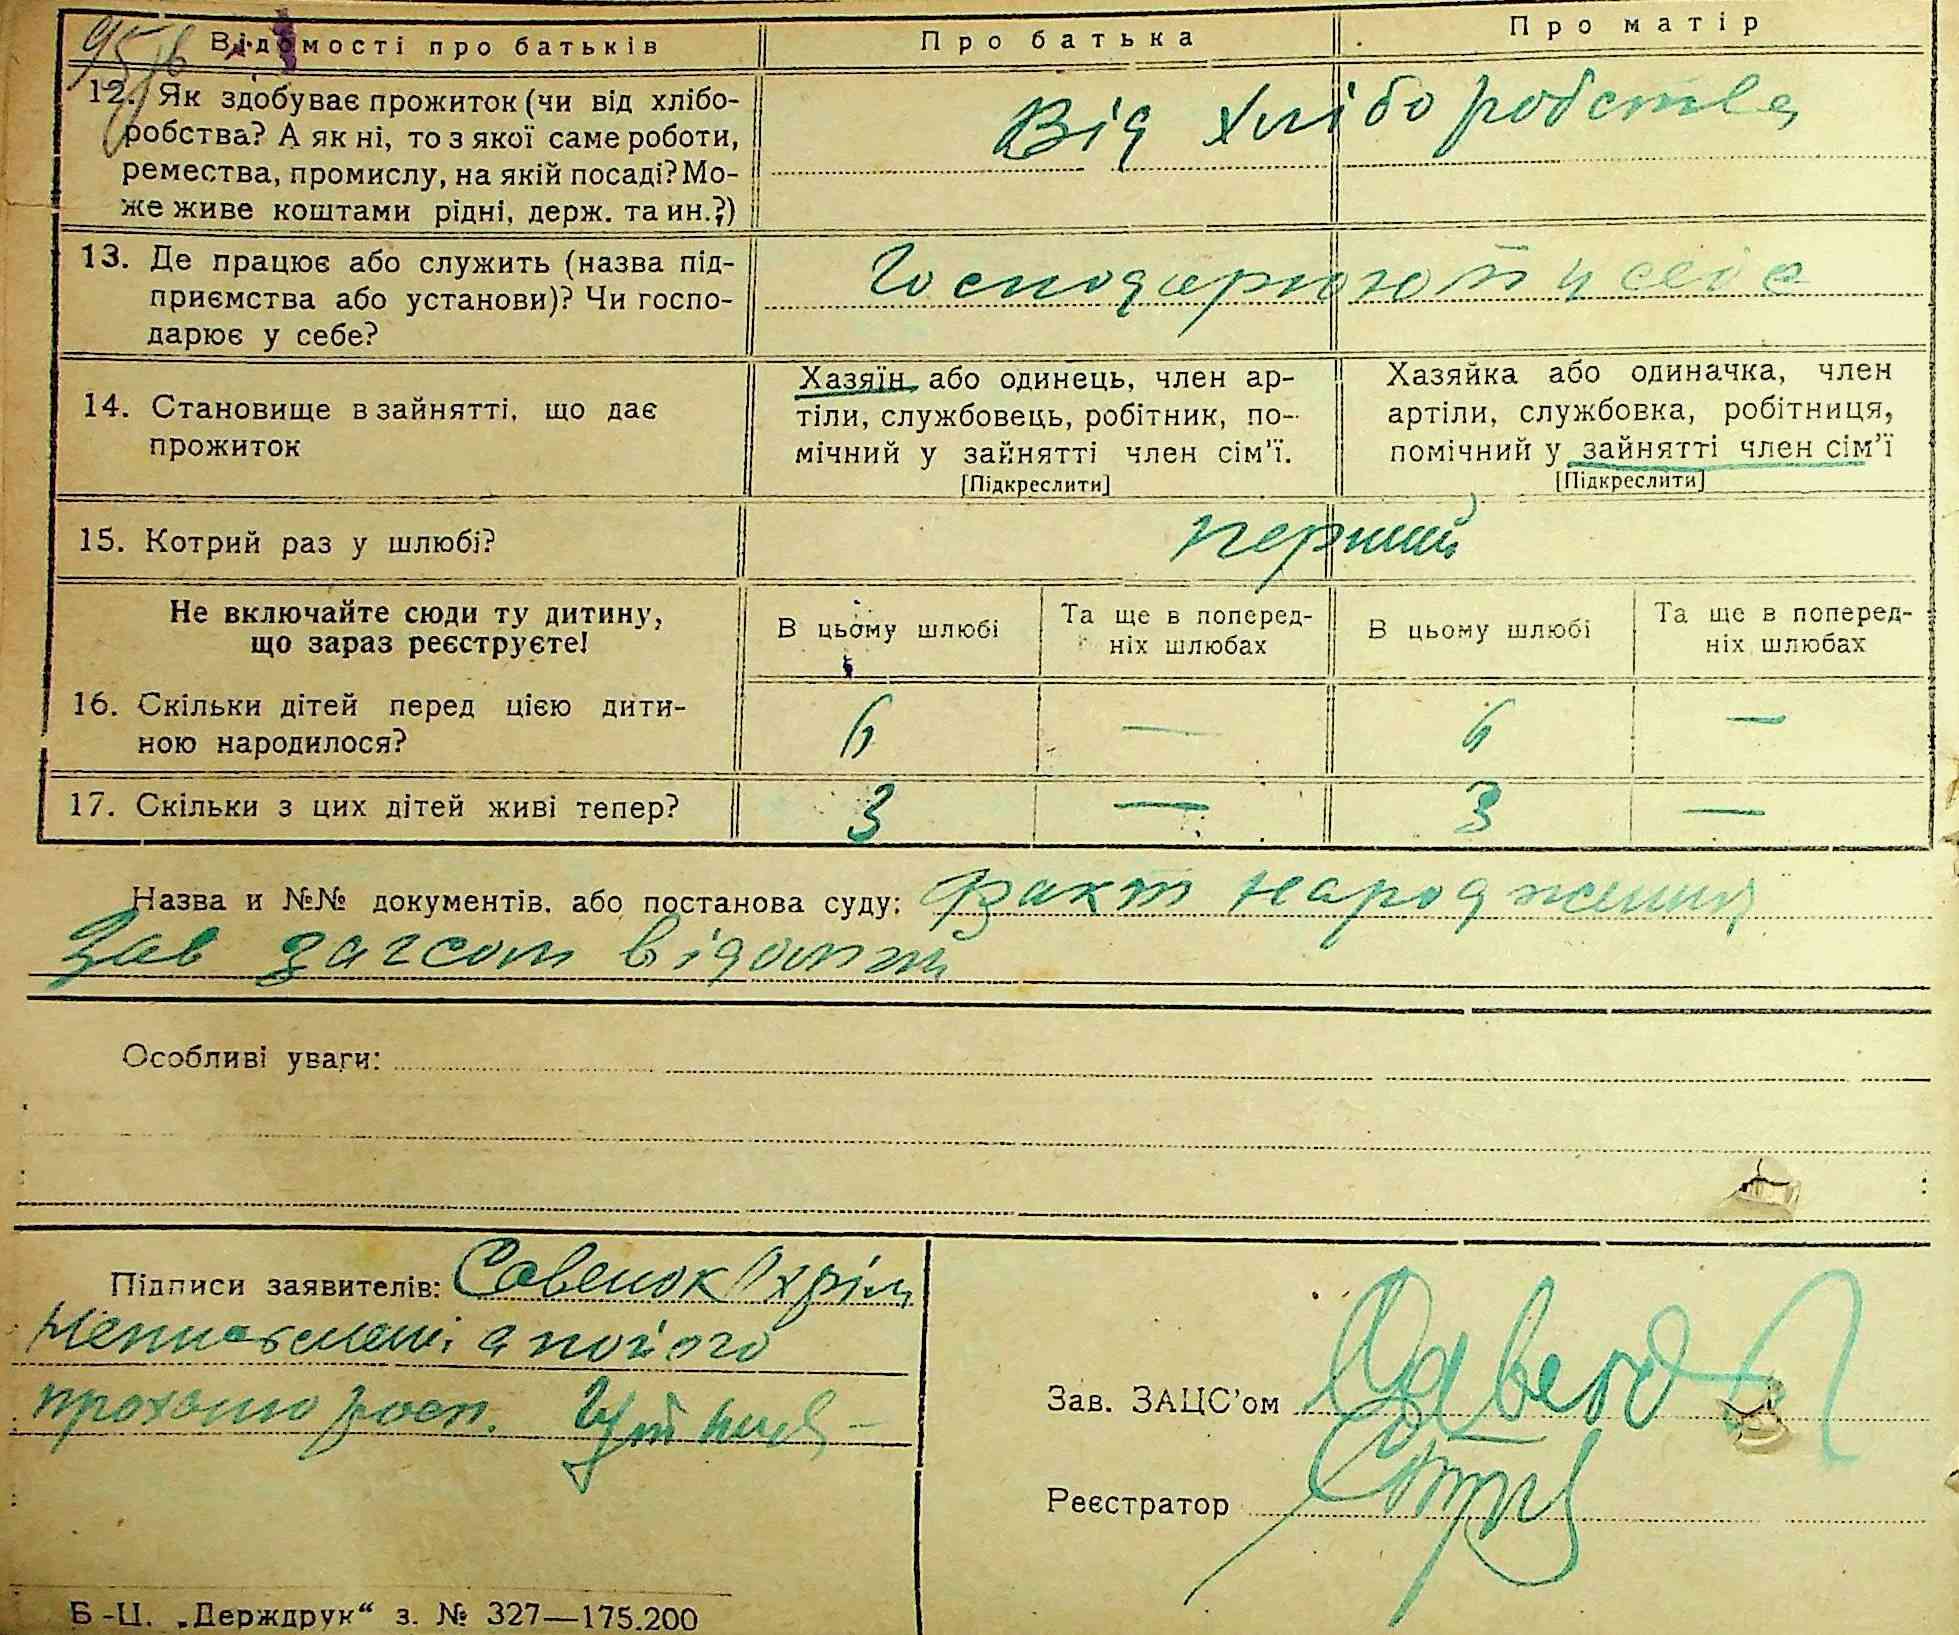 Відомості про батьків
Про батька
Про матір
12. Як здобуває прожиток (чи від хлібо-
робства? А як ні, то з якої саме роботи,
ремества, промислу, на якій посаді? Мо-
же живе коштами рідні, держ. та ин.?)
Від хліборобства
13. Де працює або служить (назва під-
приємства або установи)? Чи госпо-
дарює у себе?
Господарюють у себе
14. Становище в зайнятті, що дає
прожиток
Хазяїн або одинець, член ар-
тіли, службовець, робітник, по-
мічний у зайнятті член сім'ї.
[Підкреслити]
Хазяйка або одиначка, член
артіли, службовка, робітниця,
помічний у зайнятті член сім'ї
[Підкреслити]
15. Котрий раз у шлюбі?
перший
Не включайте сюди ту дитину,
що зараз реєструєте!
В цьому шлюбі
Та ще в поперед-
ніх шлюбах
В цьому шлюбі
Та ще в поперед-
ніх шлюбах
16. Скільки дітей перед цією дити-
ною народилося?
6 — 6 —
17. Скільки з цих дітей живі тепер?
3 — 3 —
Назва и №№ документів, або постанова суду: Факт народження
Зав загсом відомий
Особливі уваги:
Підписи заявителів: Савенок Охрім
а по його
проханню росп.
Зав. ЗАЦС'ом
Реєстратор
Б-Ц. „Держдрук“ з. № 327—175.200